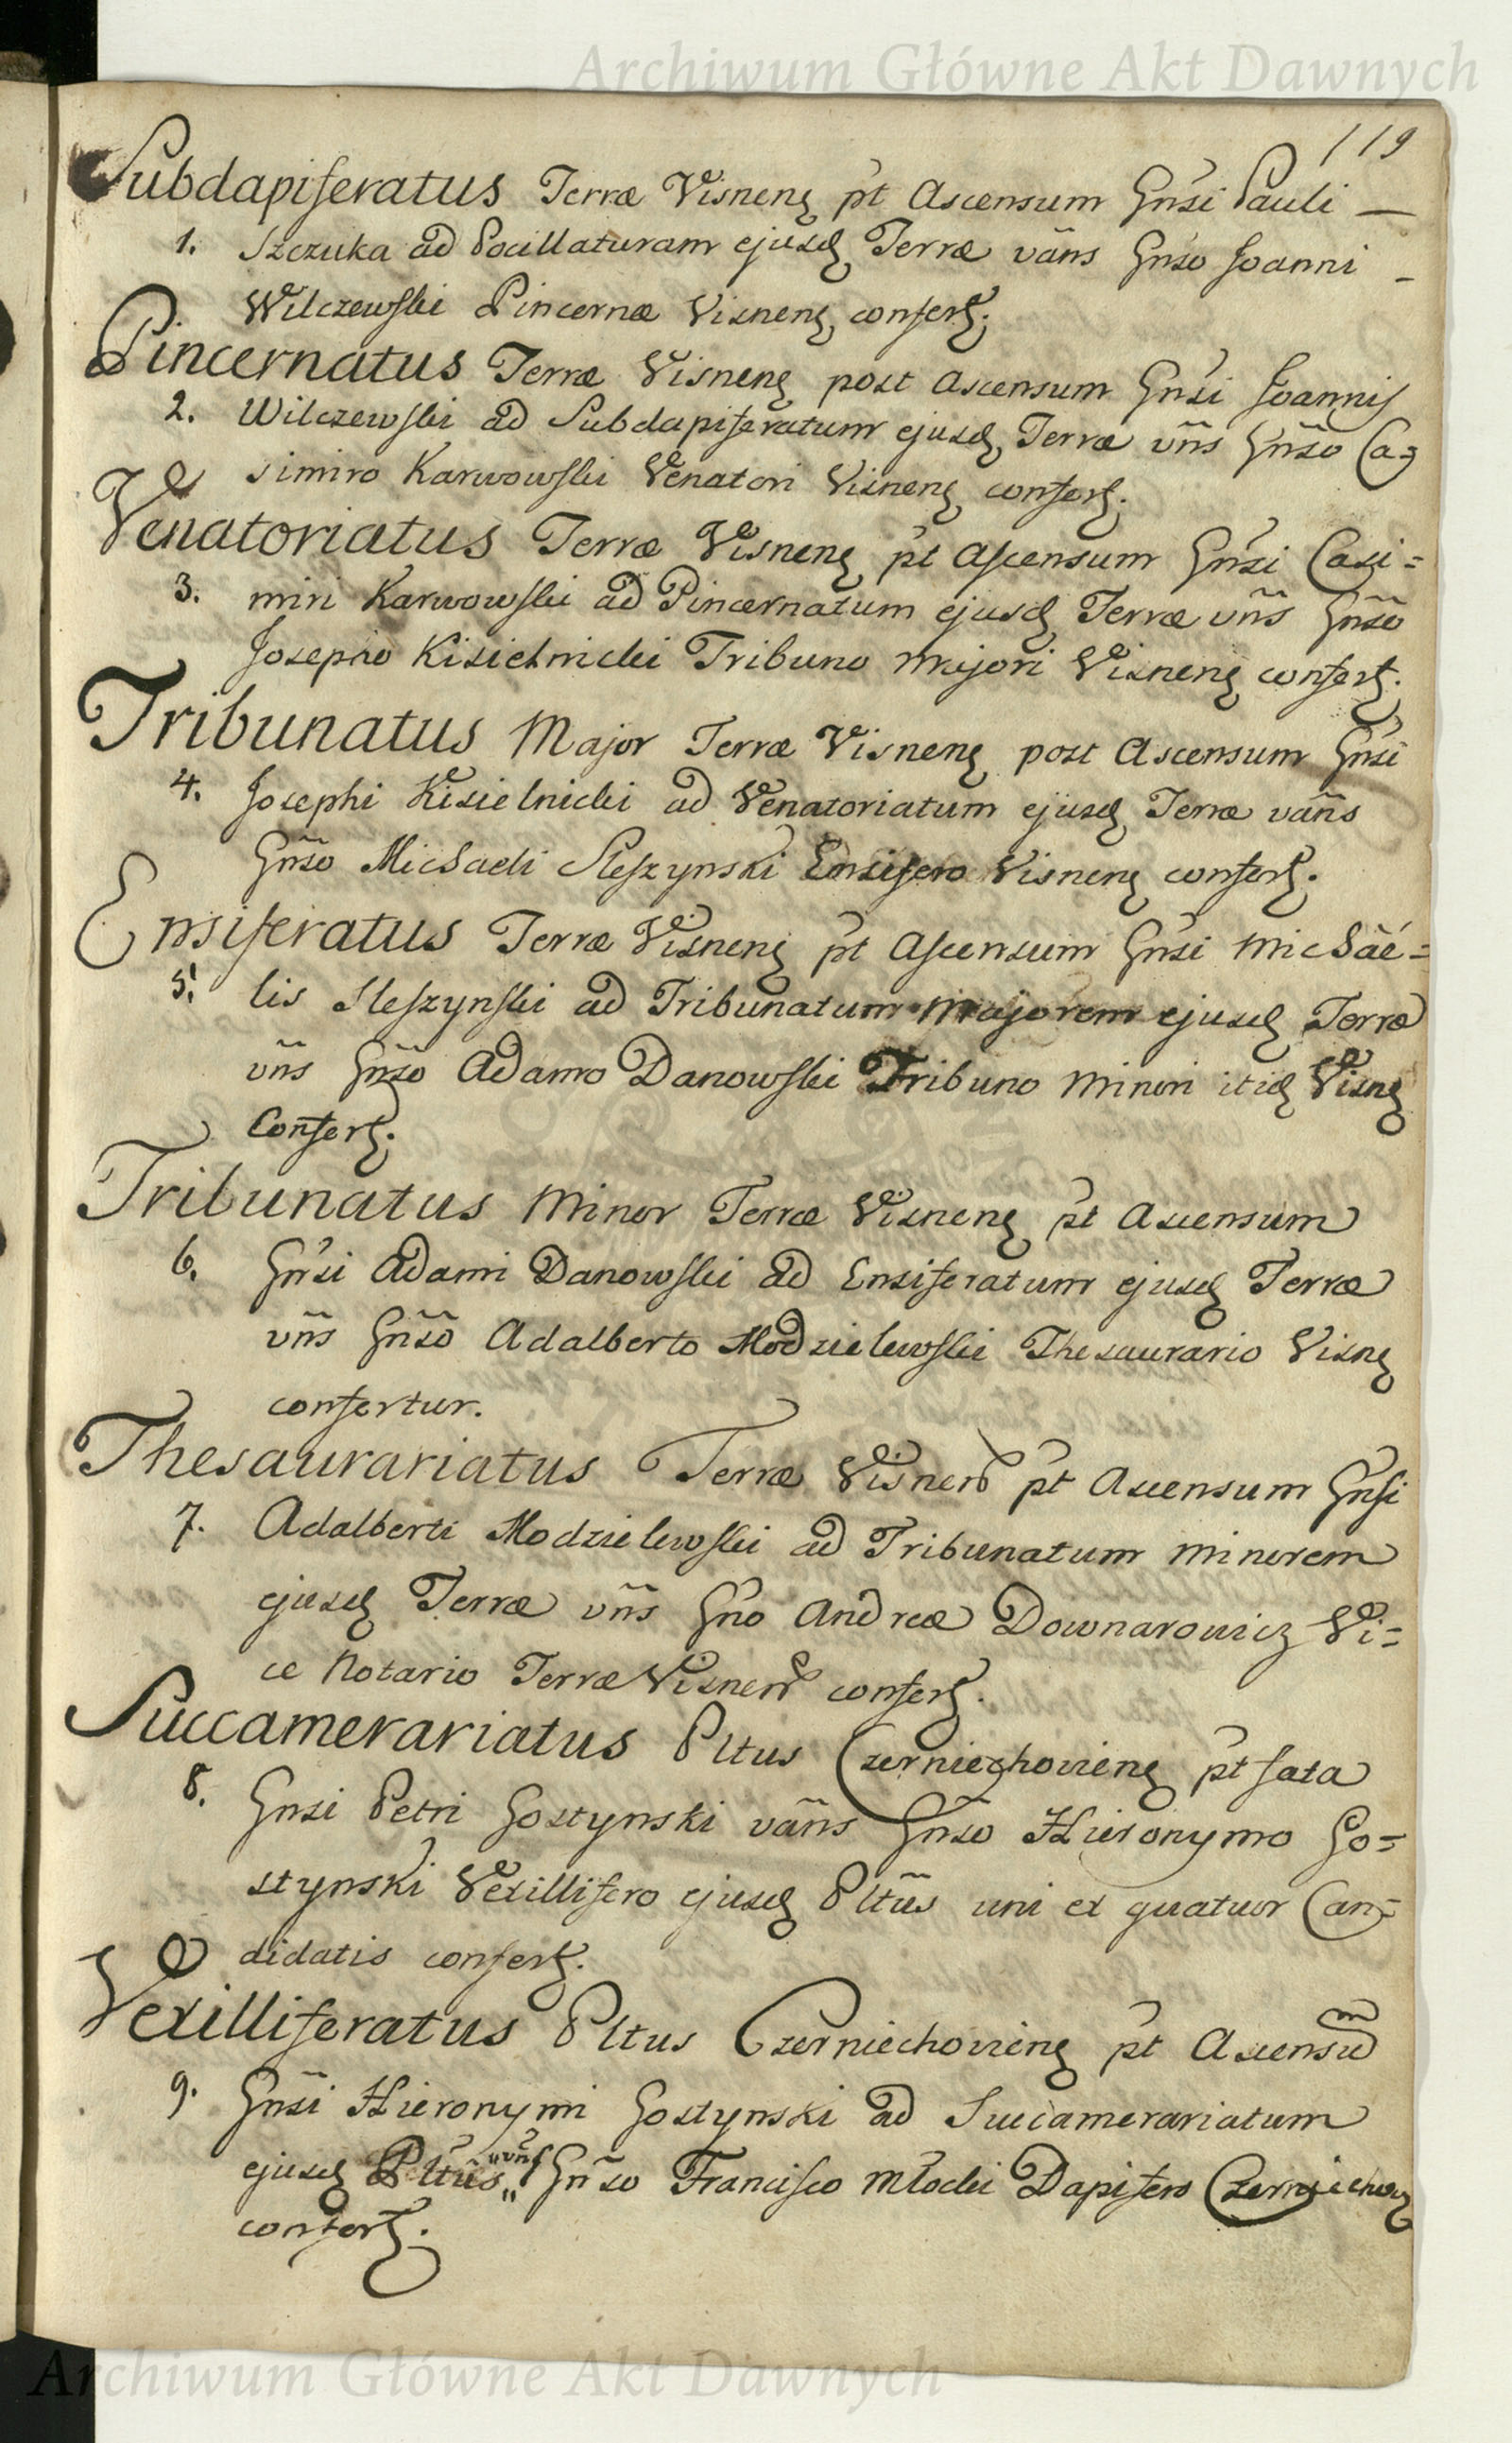 Archiwum Główne Akt Dawnych
119
Subdapiferatus Terræ Visnenȩ pt Ascensum Gnsi Pauli —
1. Szczuka ad Pocillaturam ejusdȩ Terræ vãns Gnso Joanni -
Wilczewski Pincernæ Visnenȩ confertȩ.
Pincernatus Terræ Visnenȩ post Ascensum Gnsi Joannis
2. Wilczewski ad Subdapiferatum ejusdȩ Terræ vñs Gñso Ca=
simiro Karwowski Venatori Visnenȩ confertȩ.
Venatoriatus Terræ Visnenȩ pt Ascensum Gnsi Casi=
3. miri Karwowski ad Pincernatum ejusdȩ Terræ vñs Gnsõ
Josepho Kisielnicki Tribuno Majori Visnenȩ confertȩ.
Tribunatus Major Terræ Visnenȩ post Ascensum Gnsi
4. Josephi Kisielnicki ad Venatoriatum ejusdȩ Terræ vañs
Gñso Michaeli Sleszynski Ensifero Visnenȩ confertȩ.
Ensiferatus Terræ Visnenȩ pt Ascensum Gnsi Michae=
5. lis Sleszynski ad Tribunatum Majorem ejusdȩ Terræ
vñs Gñso Adamo Danowski Tribuno Minori itidȩ Visnȩ
Confertȩ.
Tribunatus Minor Terræ Visnenȩ pt Ascensum
6. Gnsi Adami Danowski ad Ensiferatum ejusdȩ Terræ
vñs Gñsõ Adalberto Modzielewski Thesaurario Visnȩ
confertur.
Thesaurariatus Terræ Visnen pt Ascensum Gnsi
7. Adalberti Modzielewski ad Tribunatum Minorem
ejusdȩ Terræ vñs Gno Andreæ Downarowicz Vi=
ce Notario Terræ Visnen confertȩ.
Succamerariatus Pltus Czerniechovienȩ pt fata
8. Gnsi Petri Gostynski vãns Gñso Hieronymo Go=
stynski Vexillifero ejusdȩ Pltũs uni ex quatuor Can=
didatis confertȩ.
Vexilliferatus Pltus Czerniechovienȩ pt Ascensũ
9. Gnsi Hieronymi Gostynski ad Succamerariatum
ejusdȩ Pltũs „vñs" Gñso Francisco Młocki Dapifero Czerniechovȩ
confertȩ.
Archiwum Główne Akt Dawnych